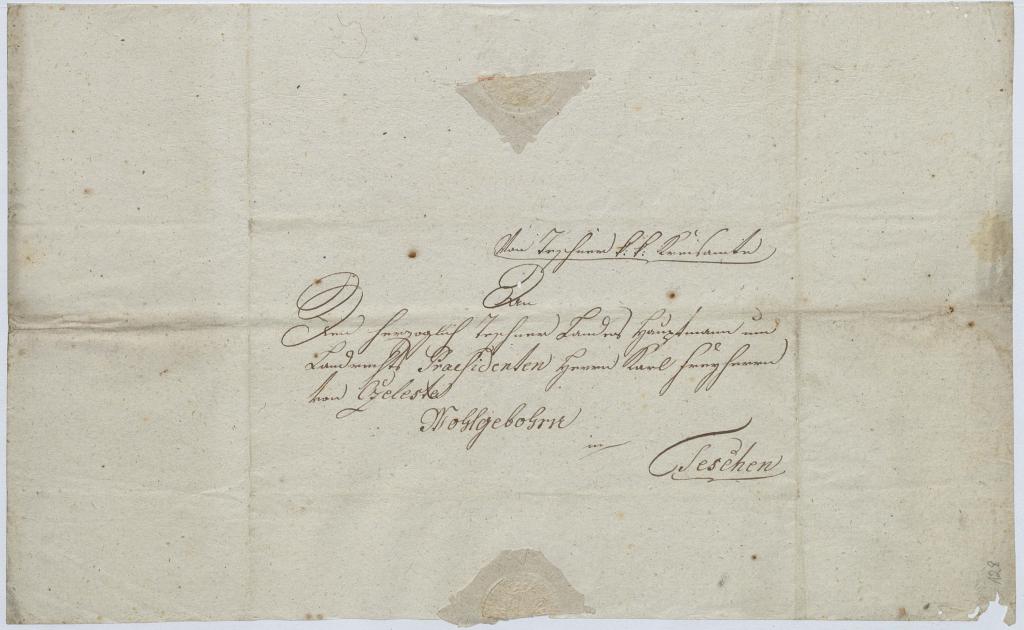 Von Teschner k: k: Kreisamte
An
Den herzoglich Teschner Landes Hauptmann und
Landrechts Praesidenten Herrn Karl Freyherrn
von Czeleste
Wohlgebohrn
in
Teschen
128